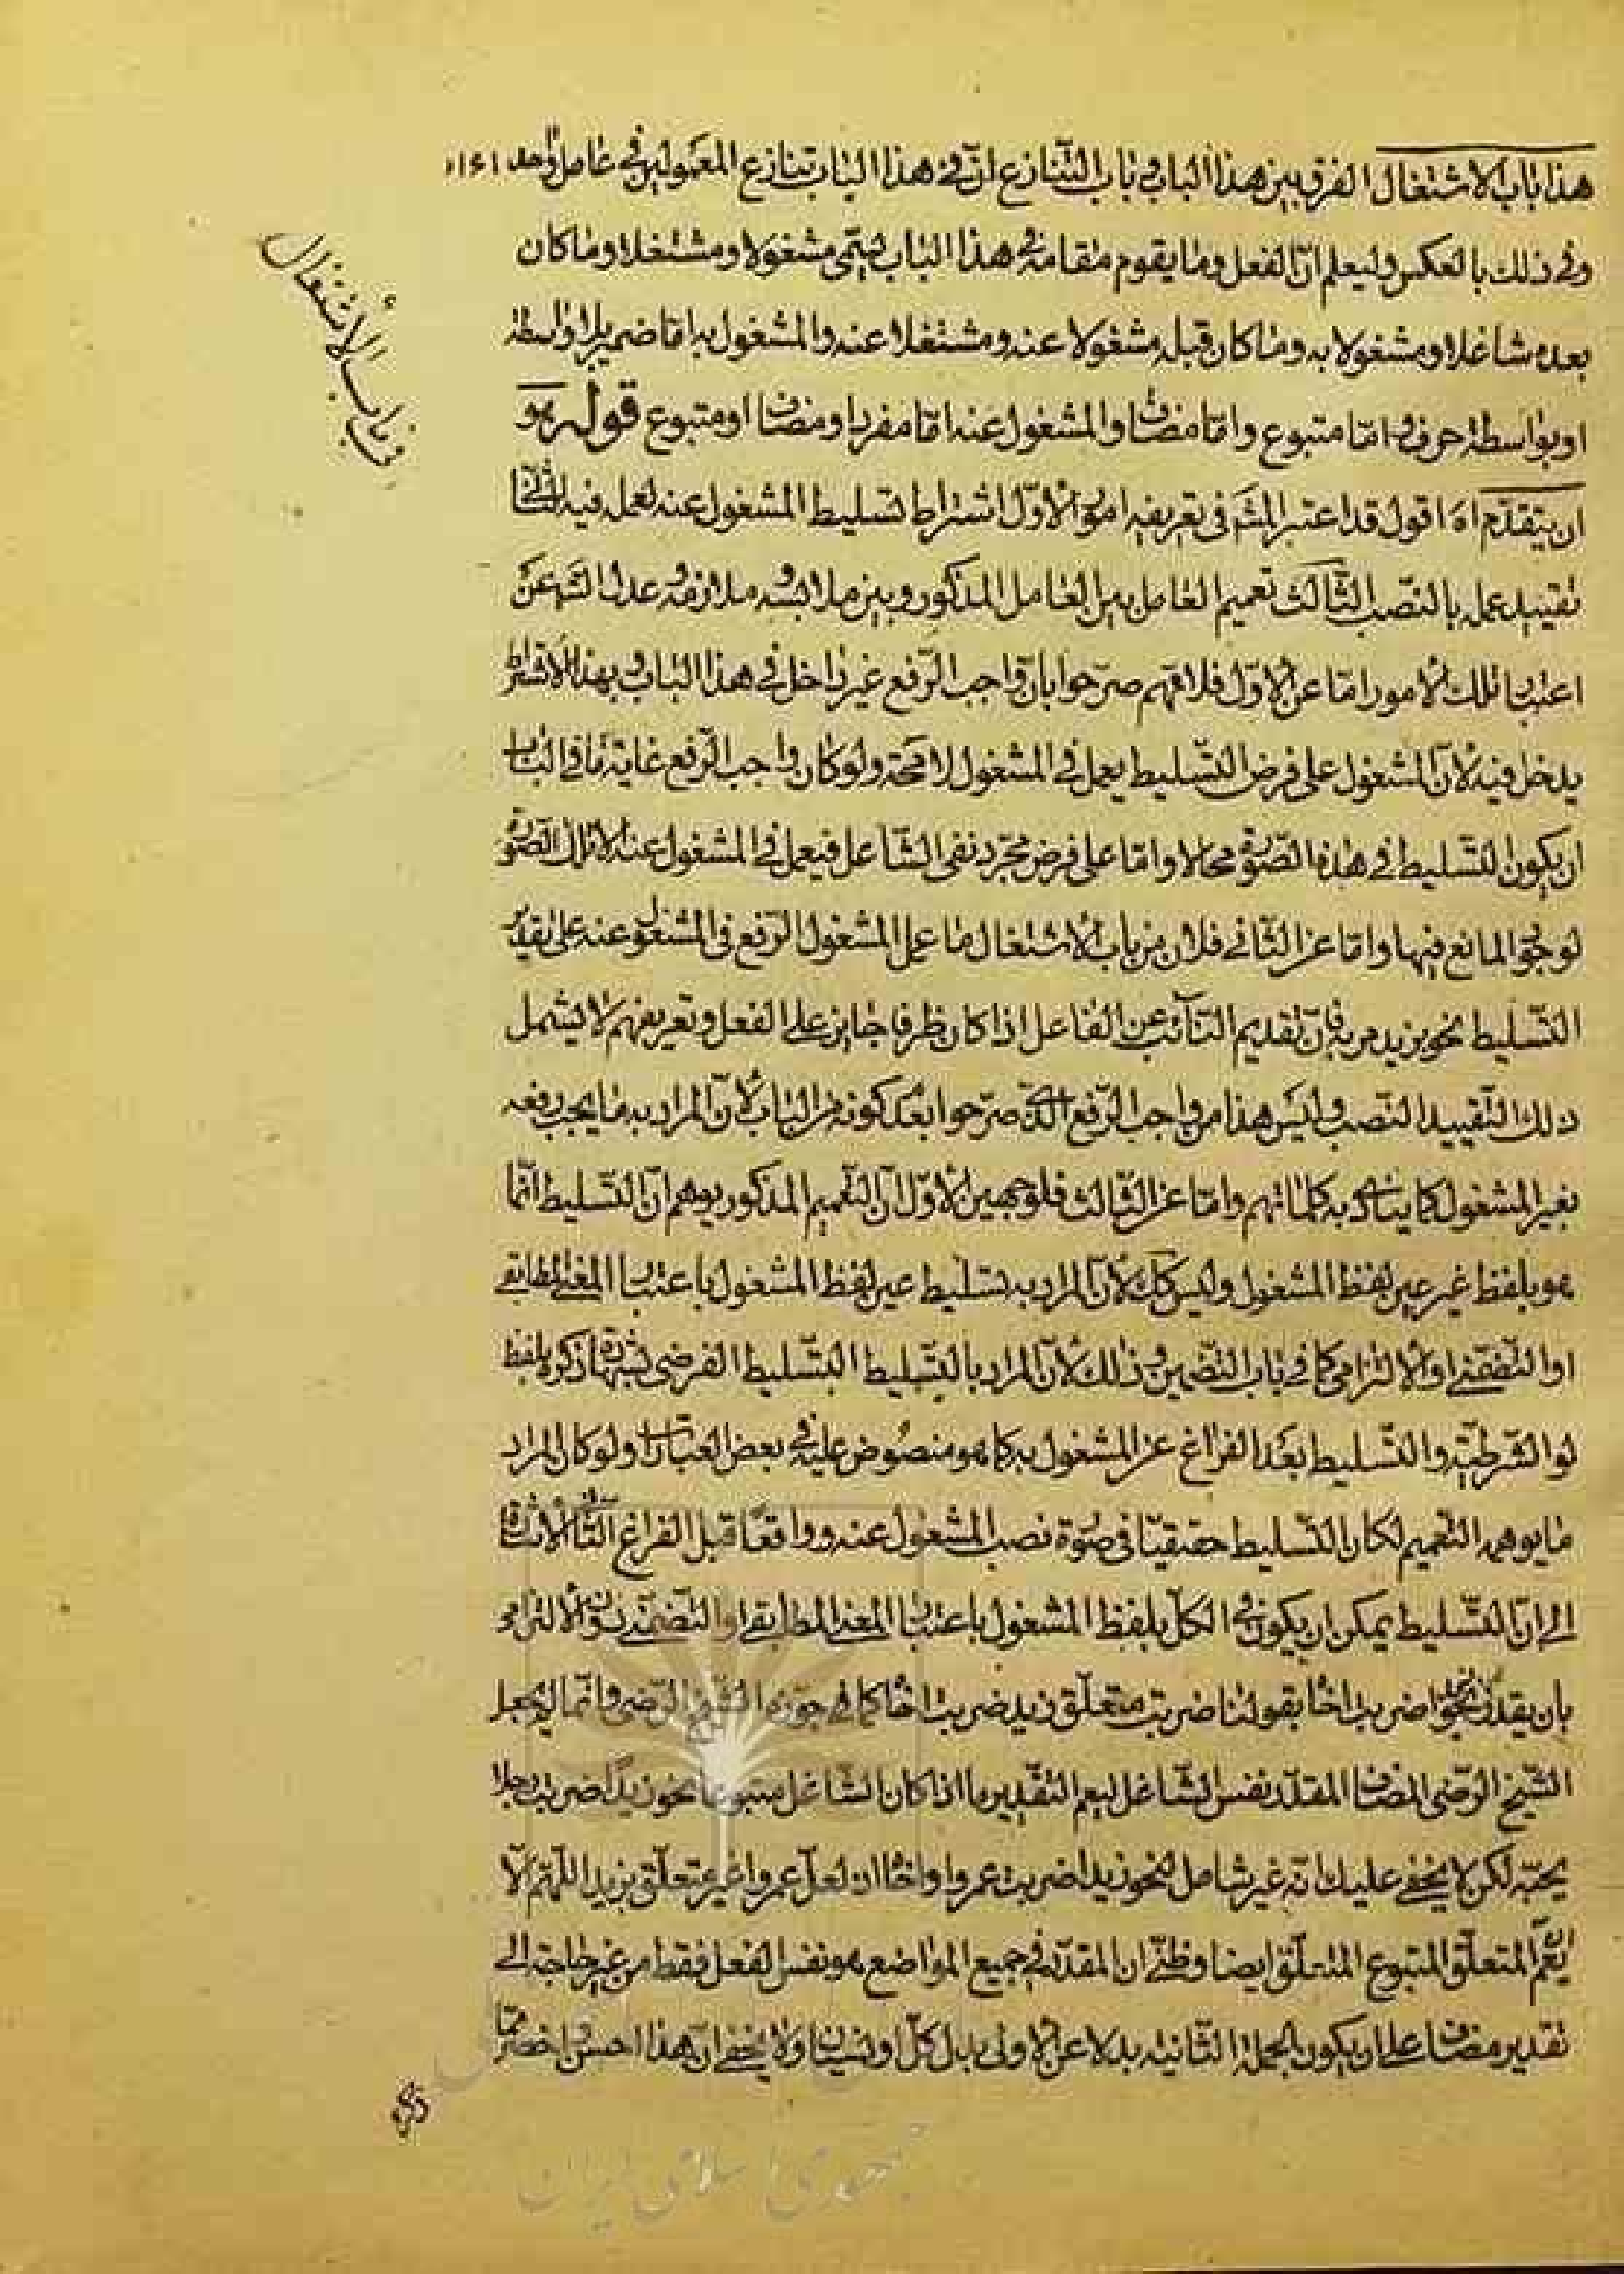 هذا باب الاشتغال الفرق بين هذا الباب وباب التنازع ان فى هذا الباب تنازع المعمولين فى عامل واحد
وفى ذلك بالعكس وليعلم ان الفعل وما يقوم مقامه فى هذا الباب يسمى مشغولا ومشتغلا وما كان
فى باب الاشتغال
بعده شاغلا ومشغولا به وما كان قبله مشغولا عنه ومشتغلا عنه والمشغول به اما ضمير بلا واسطة
او بواسطة حرف واما متبوع واما مضاف والمشغول عنه اما مفرد او مضاف او متبوع قوله هو
ان يتقدم اه اقول قد اعتبر المشهور فى تعريفه امورا الاول اشتراط تسليط المشغول عنه لعمله فيه الثانى
تقييد عمله بالنصب الثالث تعميم العامل بين العامل المذكور وبين ملابسه وملازمه وعدل الشه عن
اعتبار تلك الامور اما عن الاول فلانهم صرحوا بان واجب الرفع غير داخل فى هذا الباب وبهذا الاشتراط
يدخل فيه لان المشغول على فرض التسليط يعمل فى المشغول لا محة ولو كان واجب الرفع غاية ما فى الباب
ان يكون التسليط فى هذه الصورة محالا واما على فرض مجرد نفى الشاغل فيعمل فى المشغول عنه الا تلك الصور
لوجود المانع فيها واما عن الثانى فلان من باب الاشتغال ما عمل المشغول الرفع فى المشغول عنه على تقدير
التسليط نحو بزيد مر به فان تقديم النائب عن الفاعل اذا كان ظرفا جايز على الفعل وتعريفهم لا يشمل
ذلك لتقييد النصب وليس هذا من واجب الرفع الذى صرحوا بعدم كونه من الباب لان المراد به ما يجب رفعه
بغير المشغول كما ينادى به كلماتهم واما عن الثالث فلوجهين الاول ان التعميم المذكور يوهم ان التسليط انما
هو بلفظ غير عين لفظ المشغول وليس كك لان المراد به تسليط عين لفظ المشغول باعتبار المعنى المطابقى
او التضمنى او الالتزامى كما فى باب التضمين وذلك لان المراد بالتسليط التسليط الفرضى بشهادة ذكره بلفظ
لو الشرطية والتسليط بعد الفراغ عن المشغول به كما هو منصوص عليه فى بعض العبارات ولو كان المراد
ما يوهمه التعميم لكان التسليط حقيقيا فى صورة نصب المشغول عنه وواقعا قبل الفراغ الثانى الاشارة
الى ان التسليط يمكن ان يكون فى الكل بلفظ المشغول باعتبار المعنى المطابقى او التضمنى دون الالتزامى
بان يقدر نحو ضربت اخا بقولنا ضربت متعلق زيد ضربت اخاه كما جوزه الشيخ الرضى وانما لم يجعل
الشيخ الرضى المضاف المقدر نفس الشاغل ليعم التقدير ما اذا كان الشاغل متبوعا نحو زيدا ضربت رجلا
يحبه لكن لا يخفى عليك انه غير شامل لنحو زيدا ضربت عمروا واخاه اذ لعل عمروا غير متعلق بزيد اللهم الا
يعم المتعلق المتبوع المتعلق ايضا وظنى ان المقدر فى جميع المواضع هو نفس الفعل فقط من غير حاجة الى
تقدير مضاف على ان يكون الجملة الثانية بدلا عن الاولى بدل كل او نسيان ولا يخفى ان هذا احسن واخصر مما
جمهوری اسلامی ایران